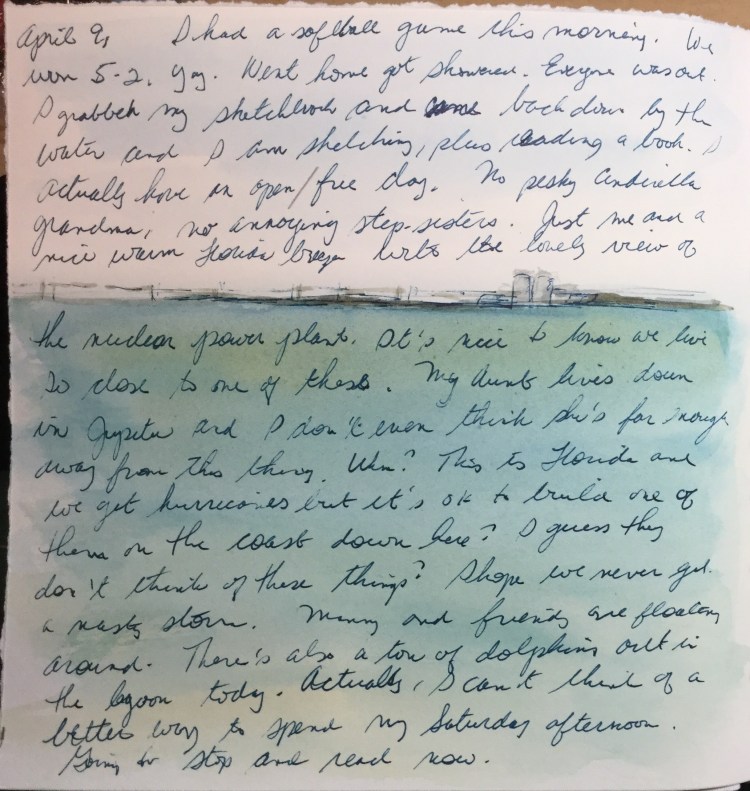 April 9, I had a softball game this morning. We
won 5-2. Yay. Went home got showered. Everyone was out.
I grabbed my sketchbook and came back down by the
water and I am sketching, plus reading a book. I
actually have an open/free day. No pesky Cinderella
grandma, no annoying step-sisters. Just me and a
nice warm Florida breeze with the lovely view of
the nuclear power plant. It's nice to know we live
so close to one of these. My Aunt lives down
in Jupiter and I don't even think she's far enough
away from this thing. Um? This is Florida and
we get hurricanes but it's ok to build one of
them on the coast down here? I guess they
don't think of these things? I hope we never get
a nasty storm. Manny and friends are floating
around. There's also a ton of dolphins out in
the lagoon today. Actually, I can't think of a
better way to spend my Saturday afternoon.
Going to stop and read now.